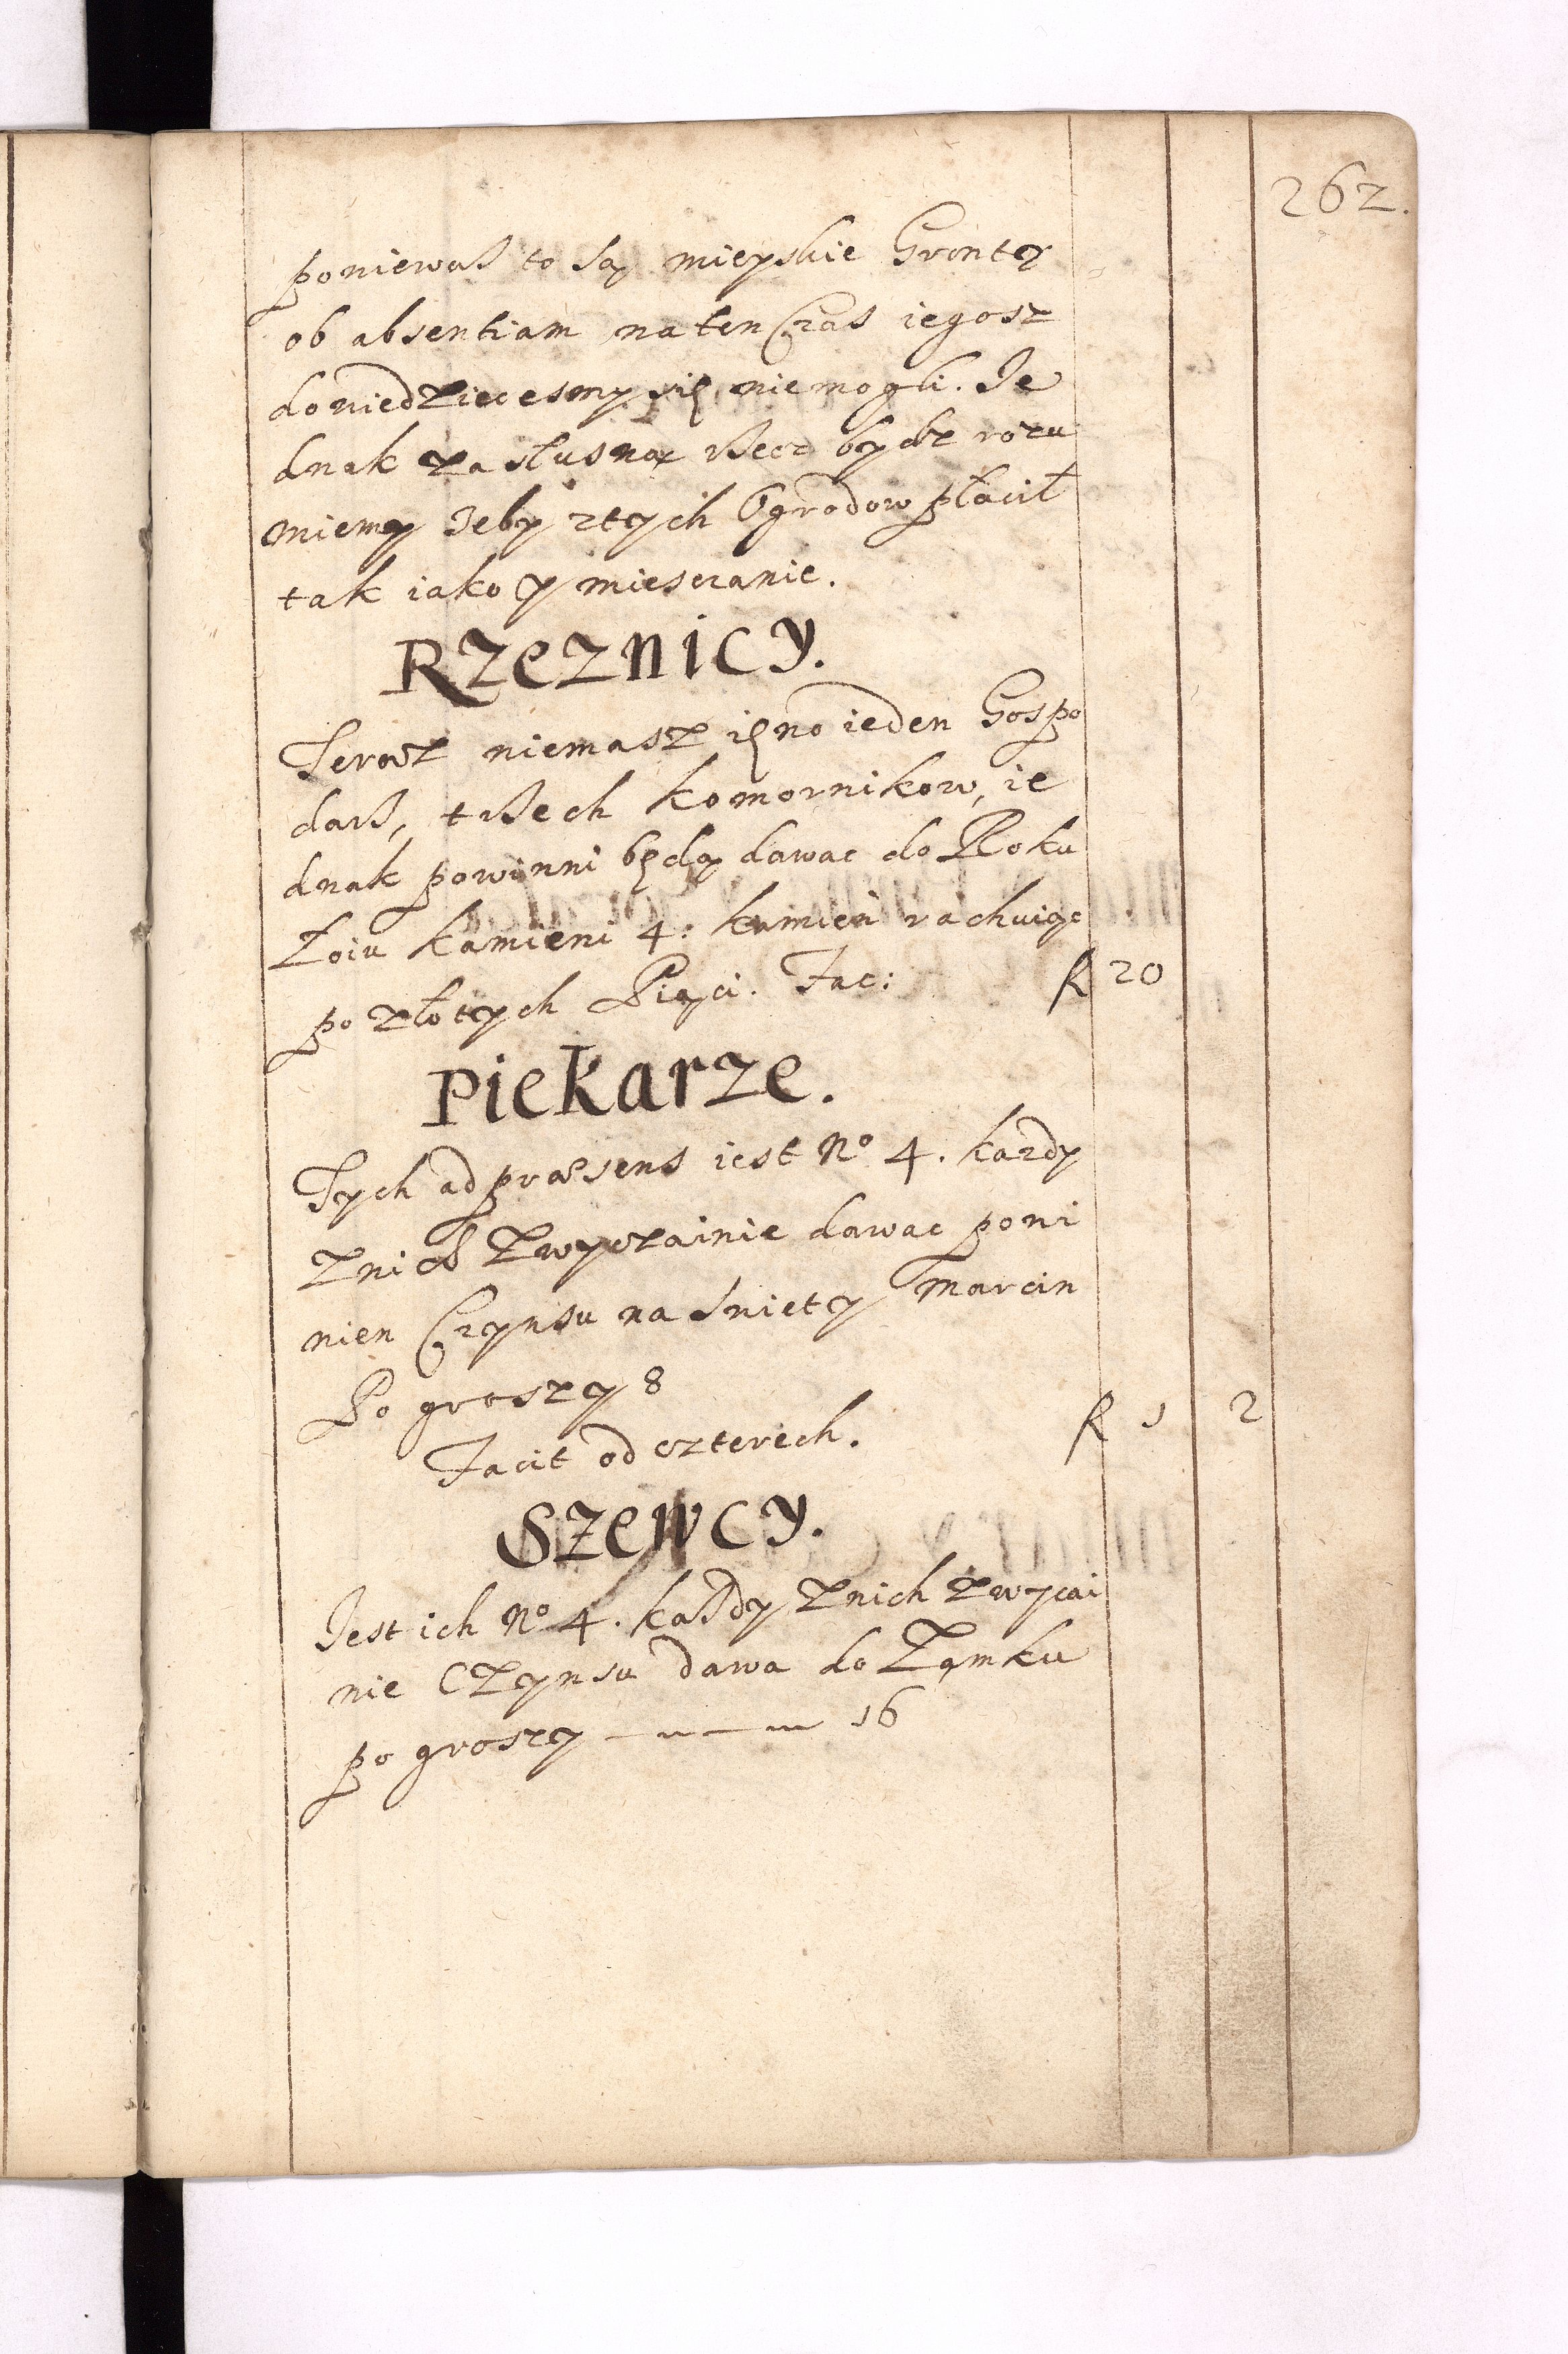 262.
poniewaß to są mieyskie Gronty
ob absentiam na ten Czas iegosz
dowiedziecesmy się niemogli. Ie
dnak za slusną rzecz bydz rozu
miemy zeby z tych Ogrodow płacił
tak iako y miesczanie.
Rzeznicy.
Teraz niemasz ięno ieden Gospo
darß, trßech komornikow, ie
dnak powinni będą dawac do Roku
Łoiu kamieni 4: kamień rachuiąc
po złotych Pięci. Fac: R 20
Piekarze.
Tych ad præsens iest No 4. kazdy
znich zwyczainie dawac powi
nien Czynsu na Swiety Marcin
Po groszy 8
Facit od czterech. R 1 2
Szewcy.
Iest ich No 4. kaßdy znich zwycai
nie Czynsu dawa do Zamku
po groszy 16